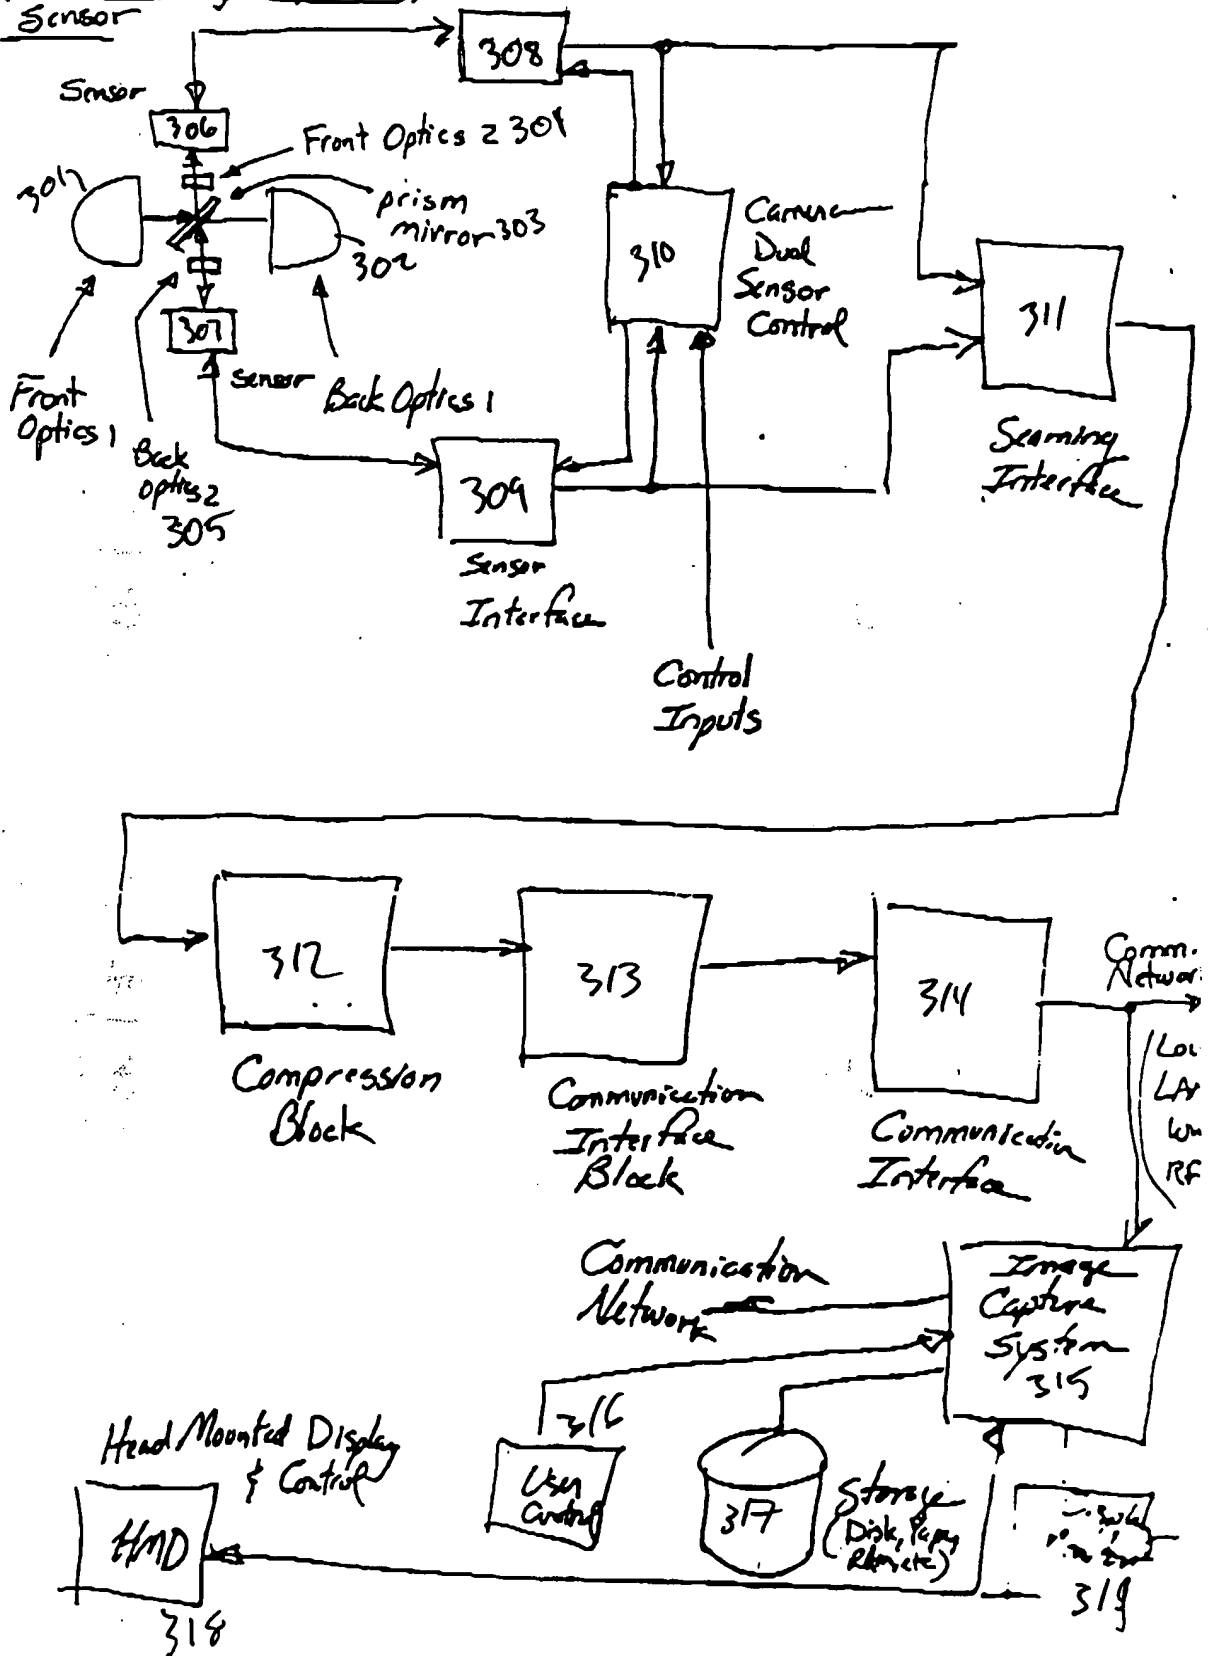 Sensor
308
Sensor
306
Front Optics 2 304
301
prism
mirror 303
302
307
sensor
Front
Optics 1
Back Optics 1
Back
optics 2
305
310
Camera
Dual
Sensor
Control
311
Seaming
Interface
309
Sensor
Interface
Control
Inputs
312
Compression
Block
313
Communication
Interface
Block
314
Communication
Interface
Comm.
Networ
LAN
RF
Communication
Network
Image
Capture
System
315
316
User
Control
317
Storage
(Disk, Tape,
RAM, etc)
Head Mounted Display
& Control
HMD
318
319